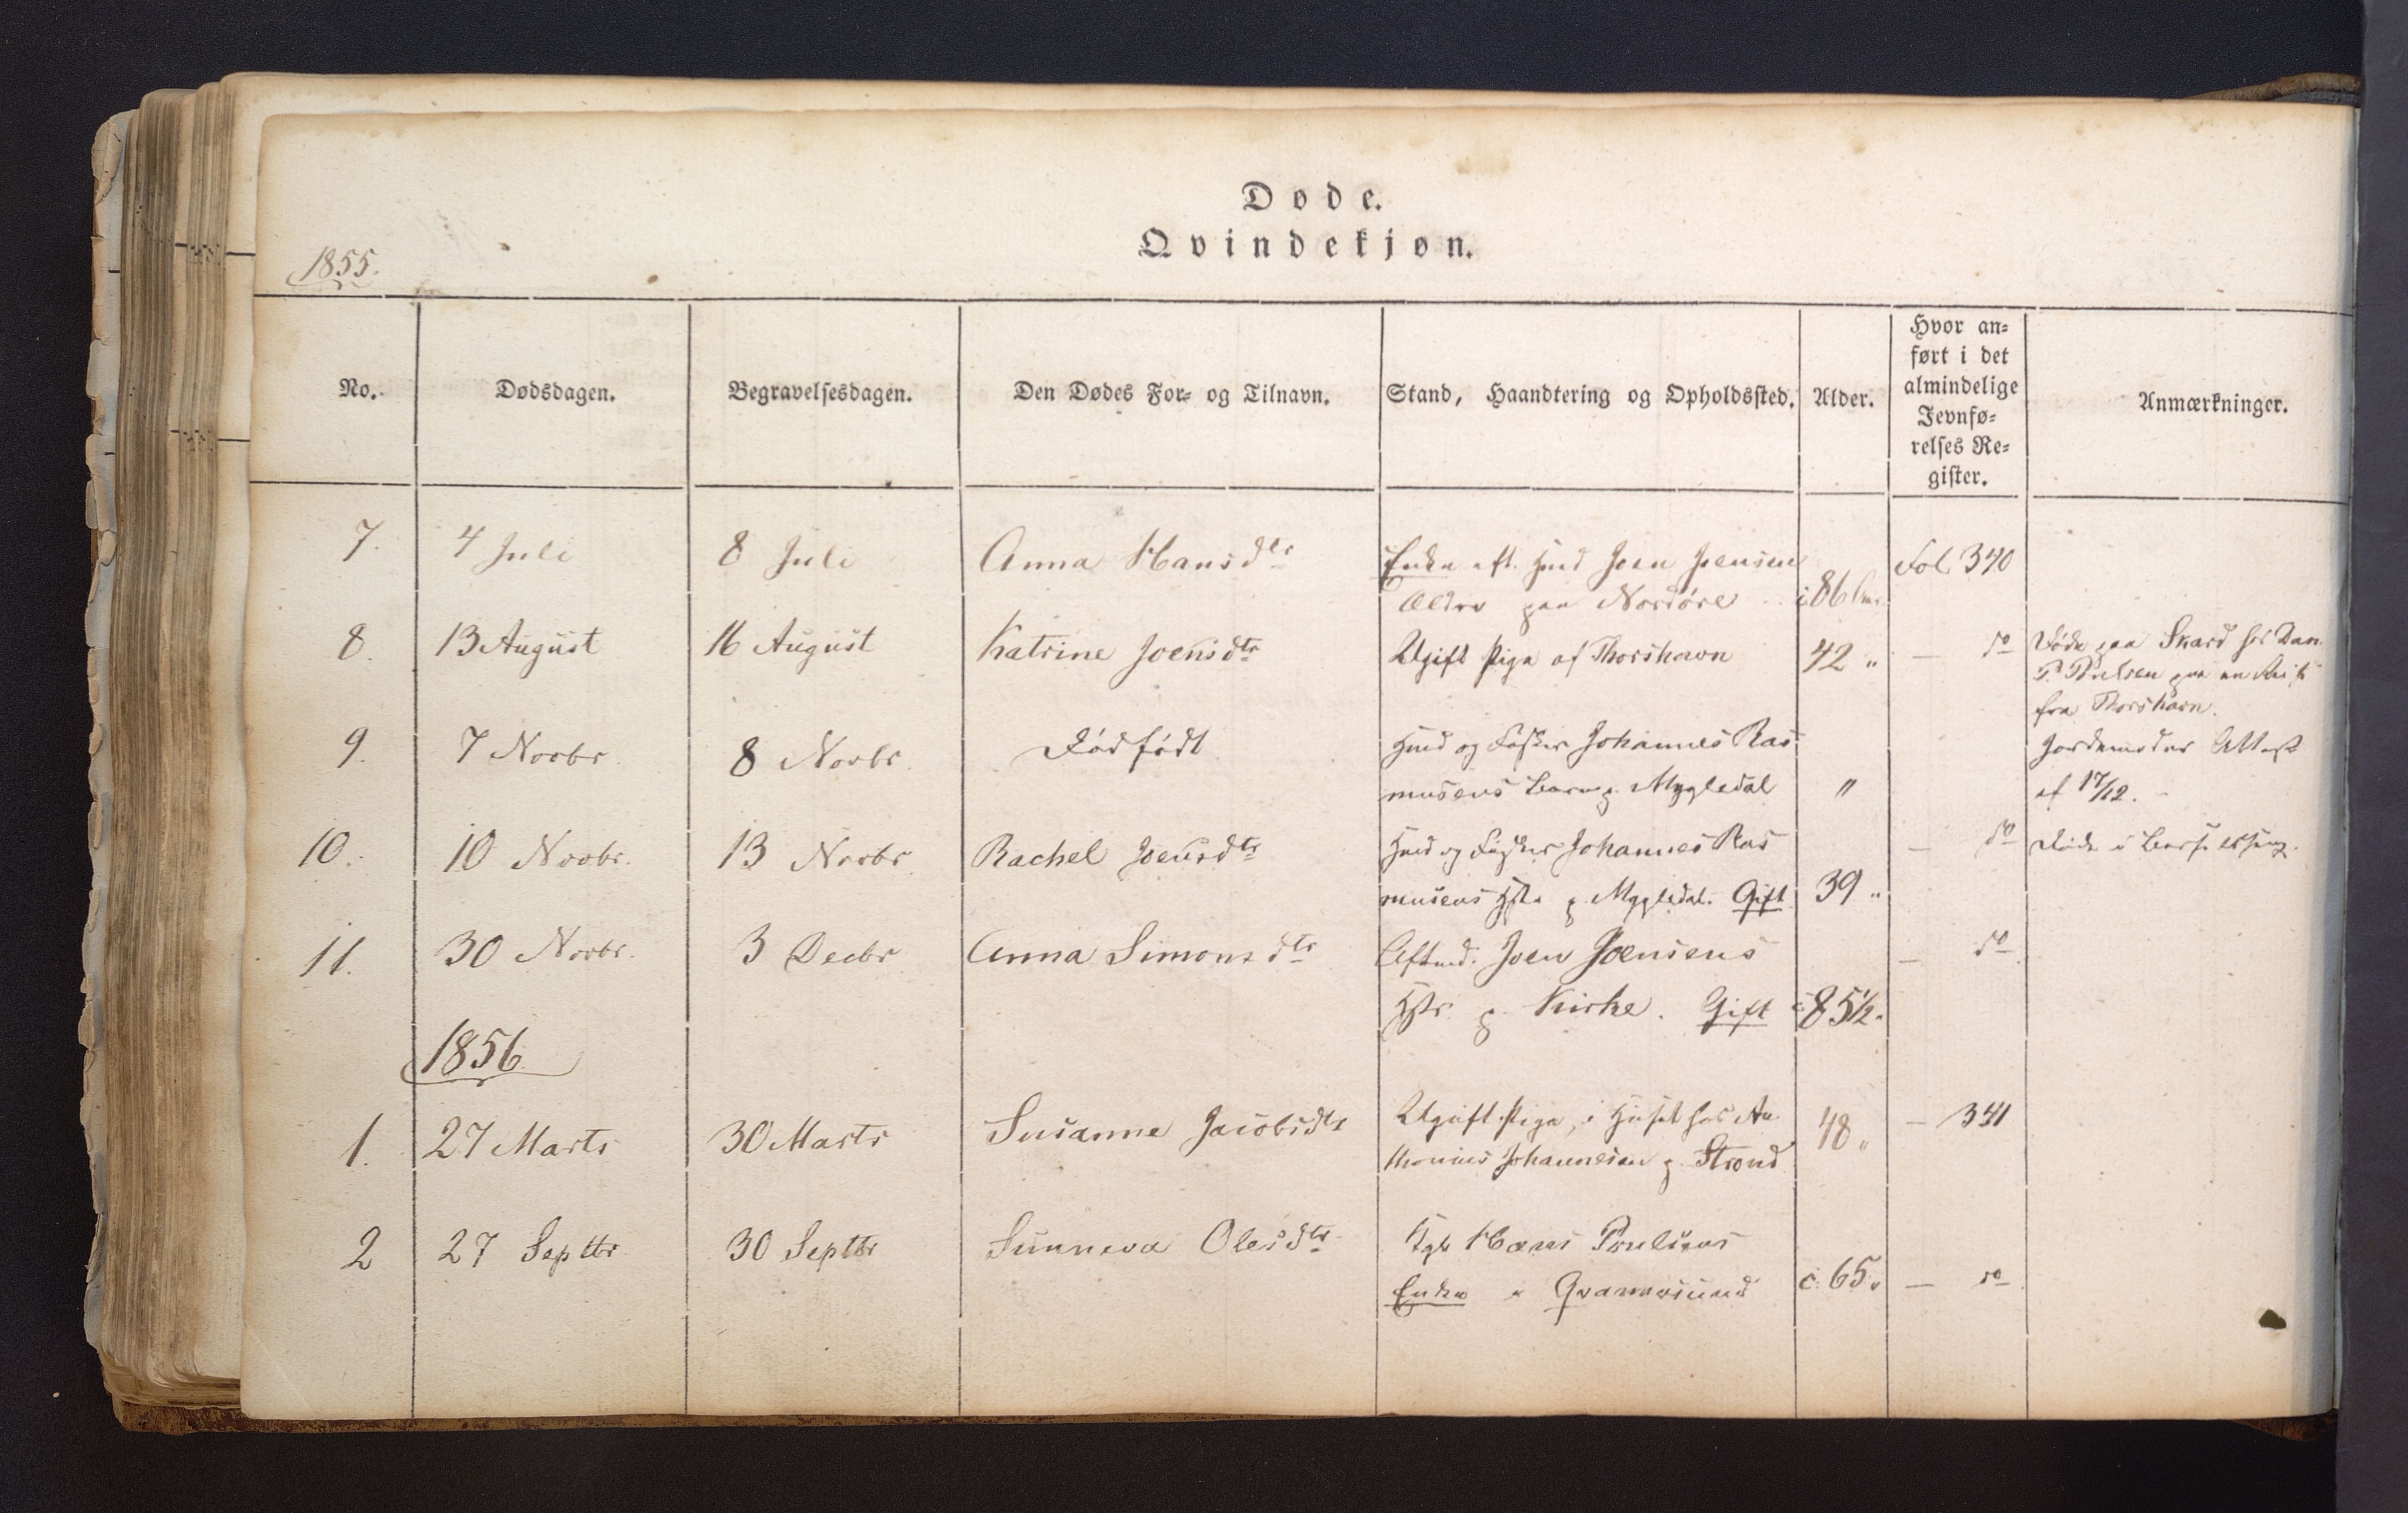 Døde.
Qvindekjøn.
1855.
No. Dødsdagen. Begravelsesdagen. Den Dødes For- og Tilnavn. Stand, Haandtering og Opholdssted. Alder. Hvor an-
ført i det
almindelige
Jevnfø-
relses Re-
gister. Anmærkninger.
7. 4 Juli 8 Juli Anna Hansdtr Enke eft. Hmd Joen Joensen Fol. 340
Ældre paa Nordøre 86
8. 13 August 16 August Katrine Joensdtr Ugift Pige af Thorshavn 42 " — do Døde paa Skard hos Dan.
P. Poulsen paa en Reise
fra Thorshavn.
9. 7 Novbr. 8 Novbr. Dødfødt Hmd og Fisker Johannes Ras-
musens Barn p. Mygledal " Jordemoder Attest
af 17/12.
10. 10 Novbr. 13 Novbr. Rachel Joensdtr Hmd og Fisker Johannes Ras
musens Hstr p. Mygledal. Gift 39 " — do Døde i Barselseng.
11. 30 Novbr. 3 Decbr Anna Simonsdtr Aftmd. Joen Joensens — do
Hstr. p. Kirke. Gift 85 1/2 "
1856
1. 27 Marts 30 Marts Susanne Jacobsdtr Ugift Pige, i Huset hos An-
thonius Johannesen p. Strond 48 " — 341
2 27 Septbr 30 Septbr Sunneva Olesdtr Hans Poulsens
Enke i Qvannesund c. 65 " — do